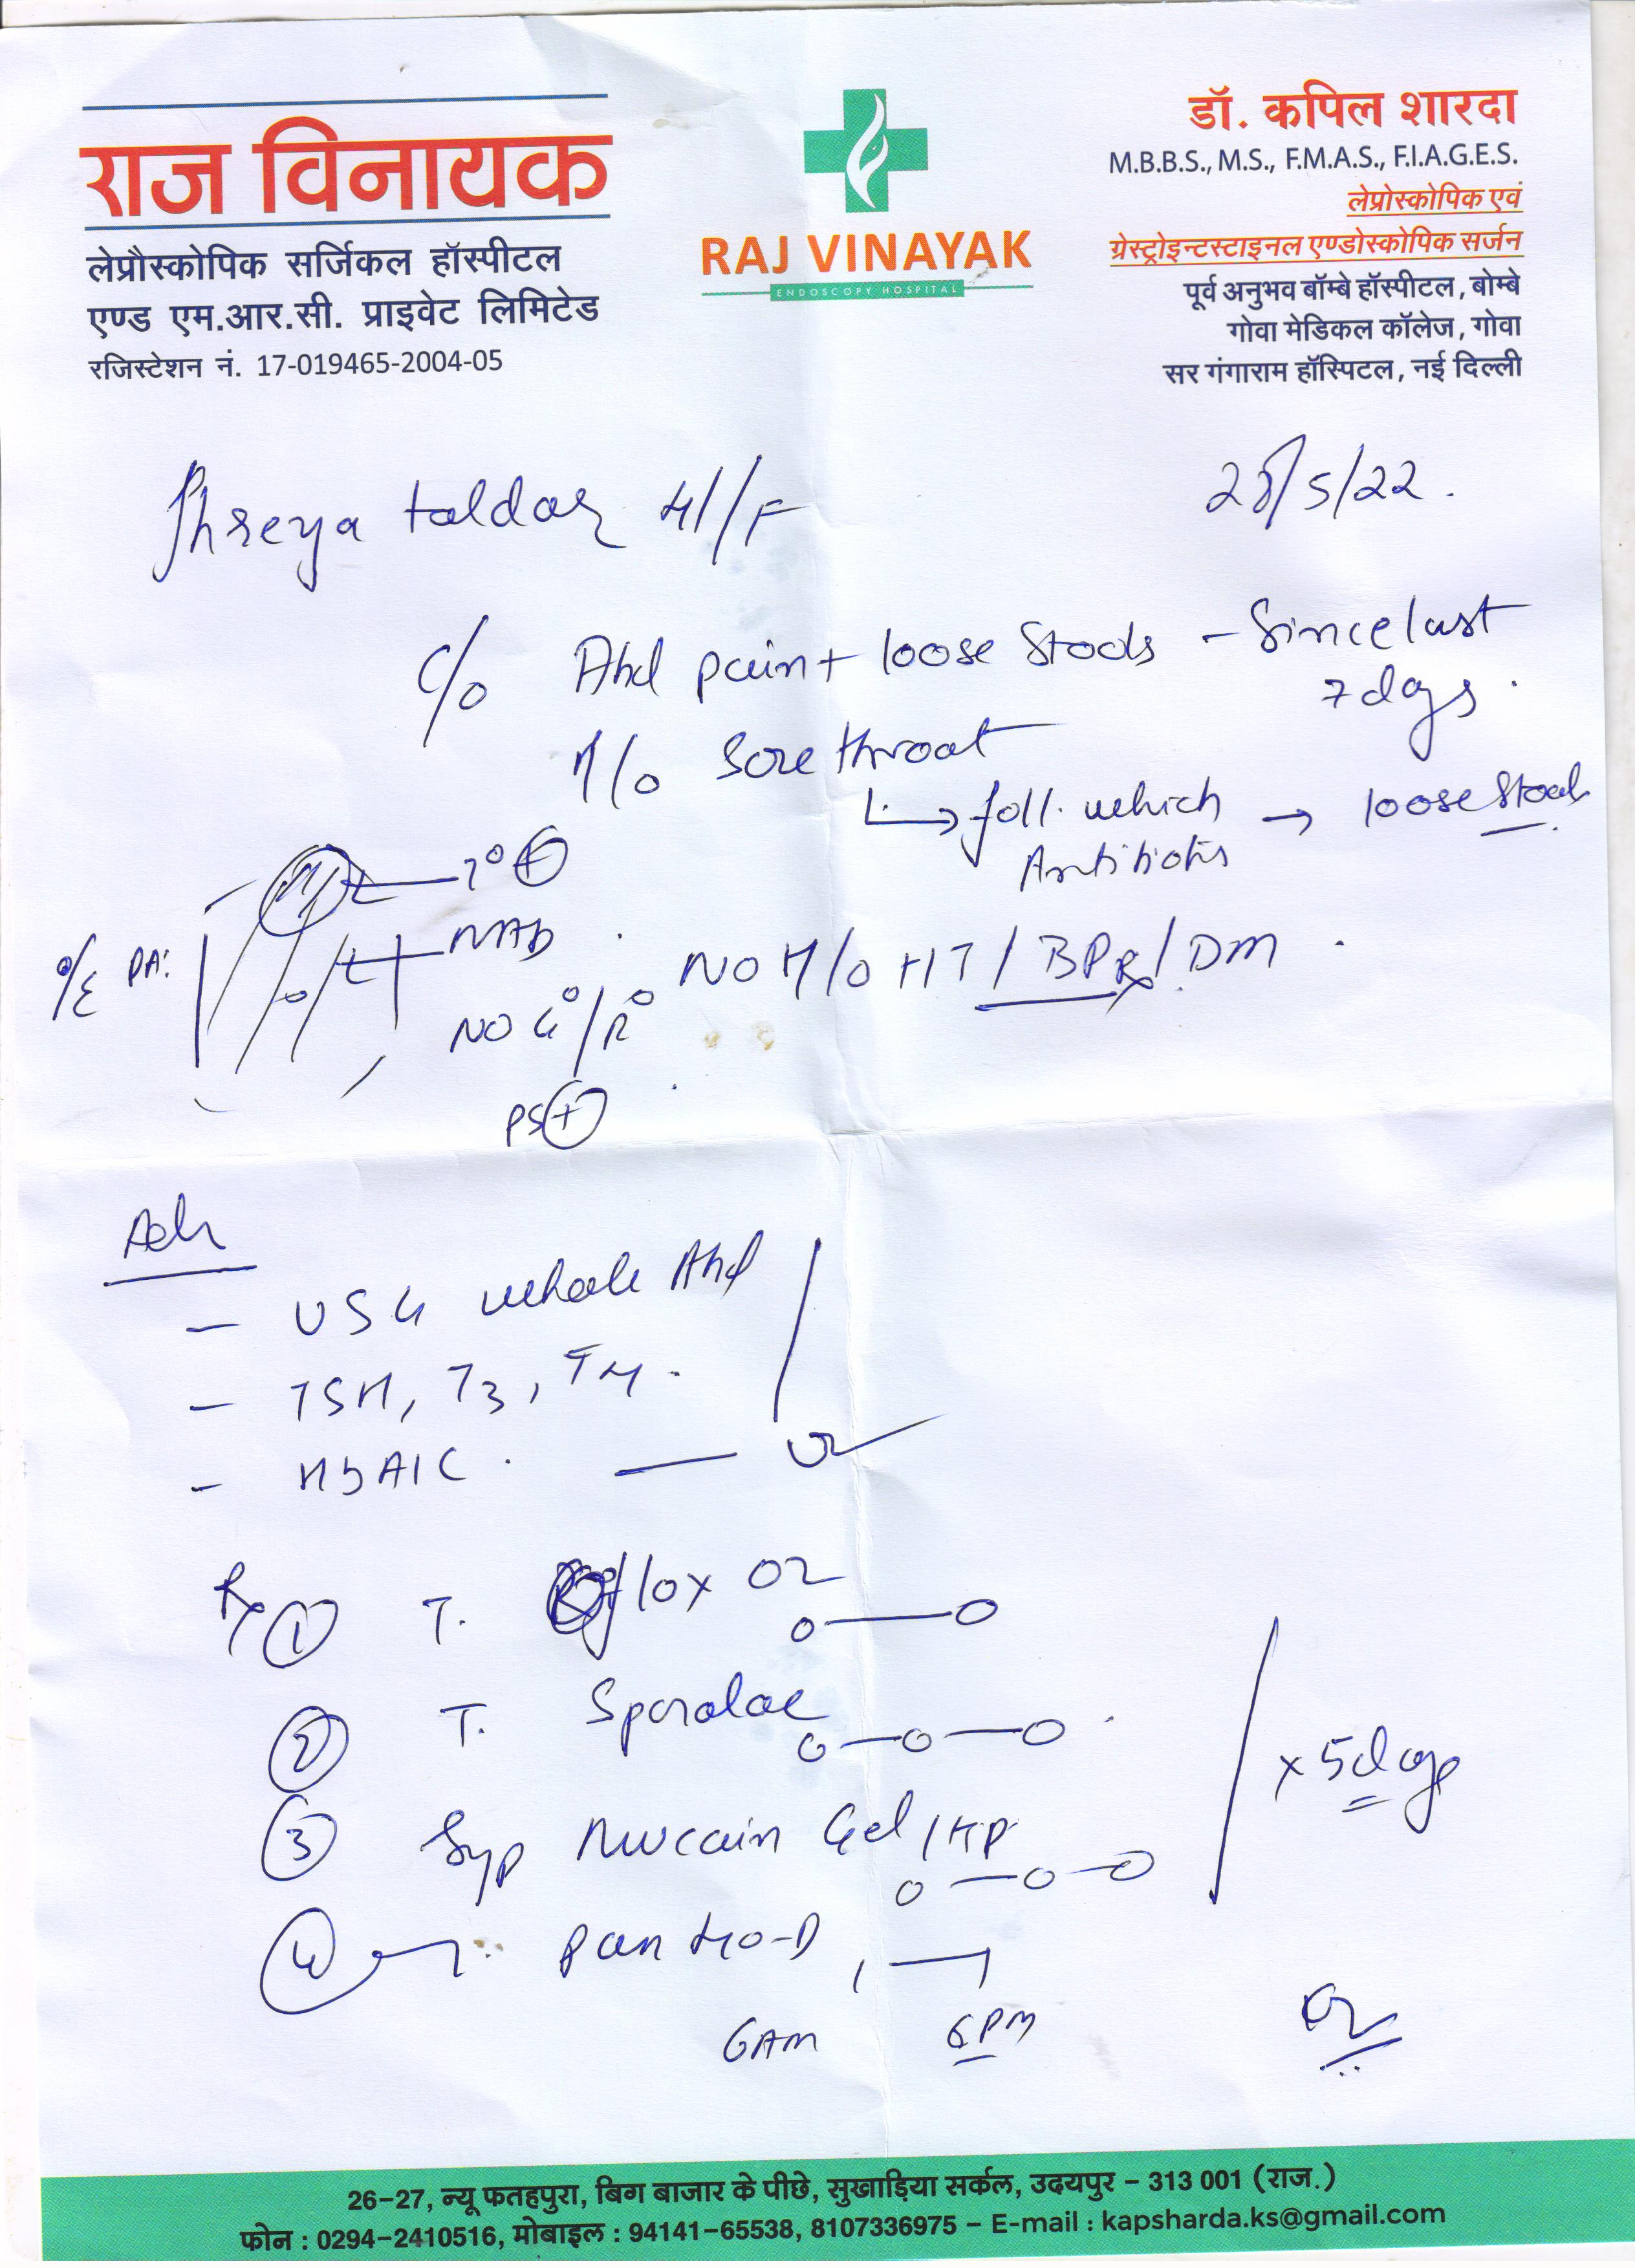 राज विनायक
लेप्रौस्कोपिक सर्जिकल हॉस्पीटल
एण्ड एम.आर.सी. प्राइवेट लिमिटेड
रजिस्टेशन नं. 17-019465-2004-05
RAJ VINAYAK
ENDOSCOPY HOSPITAL
डॉ. कपिल शारदा
M.B.B.S., M.S., F.M.A.S., F.I.A.G.E.S.
लेप्रोस्कोपिक एवं
ग्रेस्ट्रोइन्टस्टाइनल एण्डोस्कोपिक सर्जन
पूर्व अनुभव बॉम्बे हॉस्पीटल, बोम्बे
गोवा मेडिकल कॉलेज, गोवा
सर गंगाराम हॉस्पिटल, नई दिल्ली
Shreya 41/F
/5/22.
C/o Abd pain + loose stools - Since last
7 days.
H/o Sore throat
foll. which → loose stools
Antibiotis
T° +
NAD
O/E PA:
NO H/O HT / BP / DM
NO G°/R°
PS +
Adv
- USG whole Abd
- TSH, T3, T4.
- HbA1C.
Rx ① T. Oflox OZ
② T. Sporolac
x 5 days
③ Syp Mucain Gel
④ Pan 40-D
6AM 6PM
26-27, न्यू फतहपुरा, बिग बाजार के पीछे, सुखाड़िया सर्कल, उदयपुर - 313 001 (राज.)
फोन : 0294-2410516, मोबाइल : 94141-65538, 8107336975 - E-mail : kapsharda.ks@gmail.com